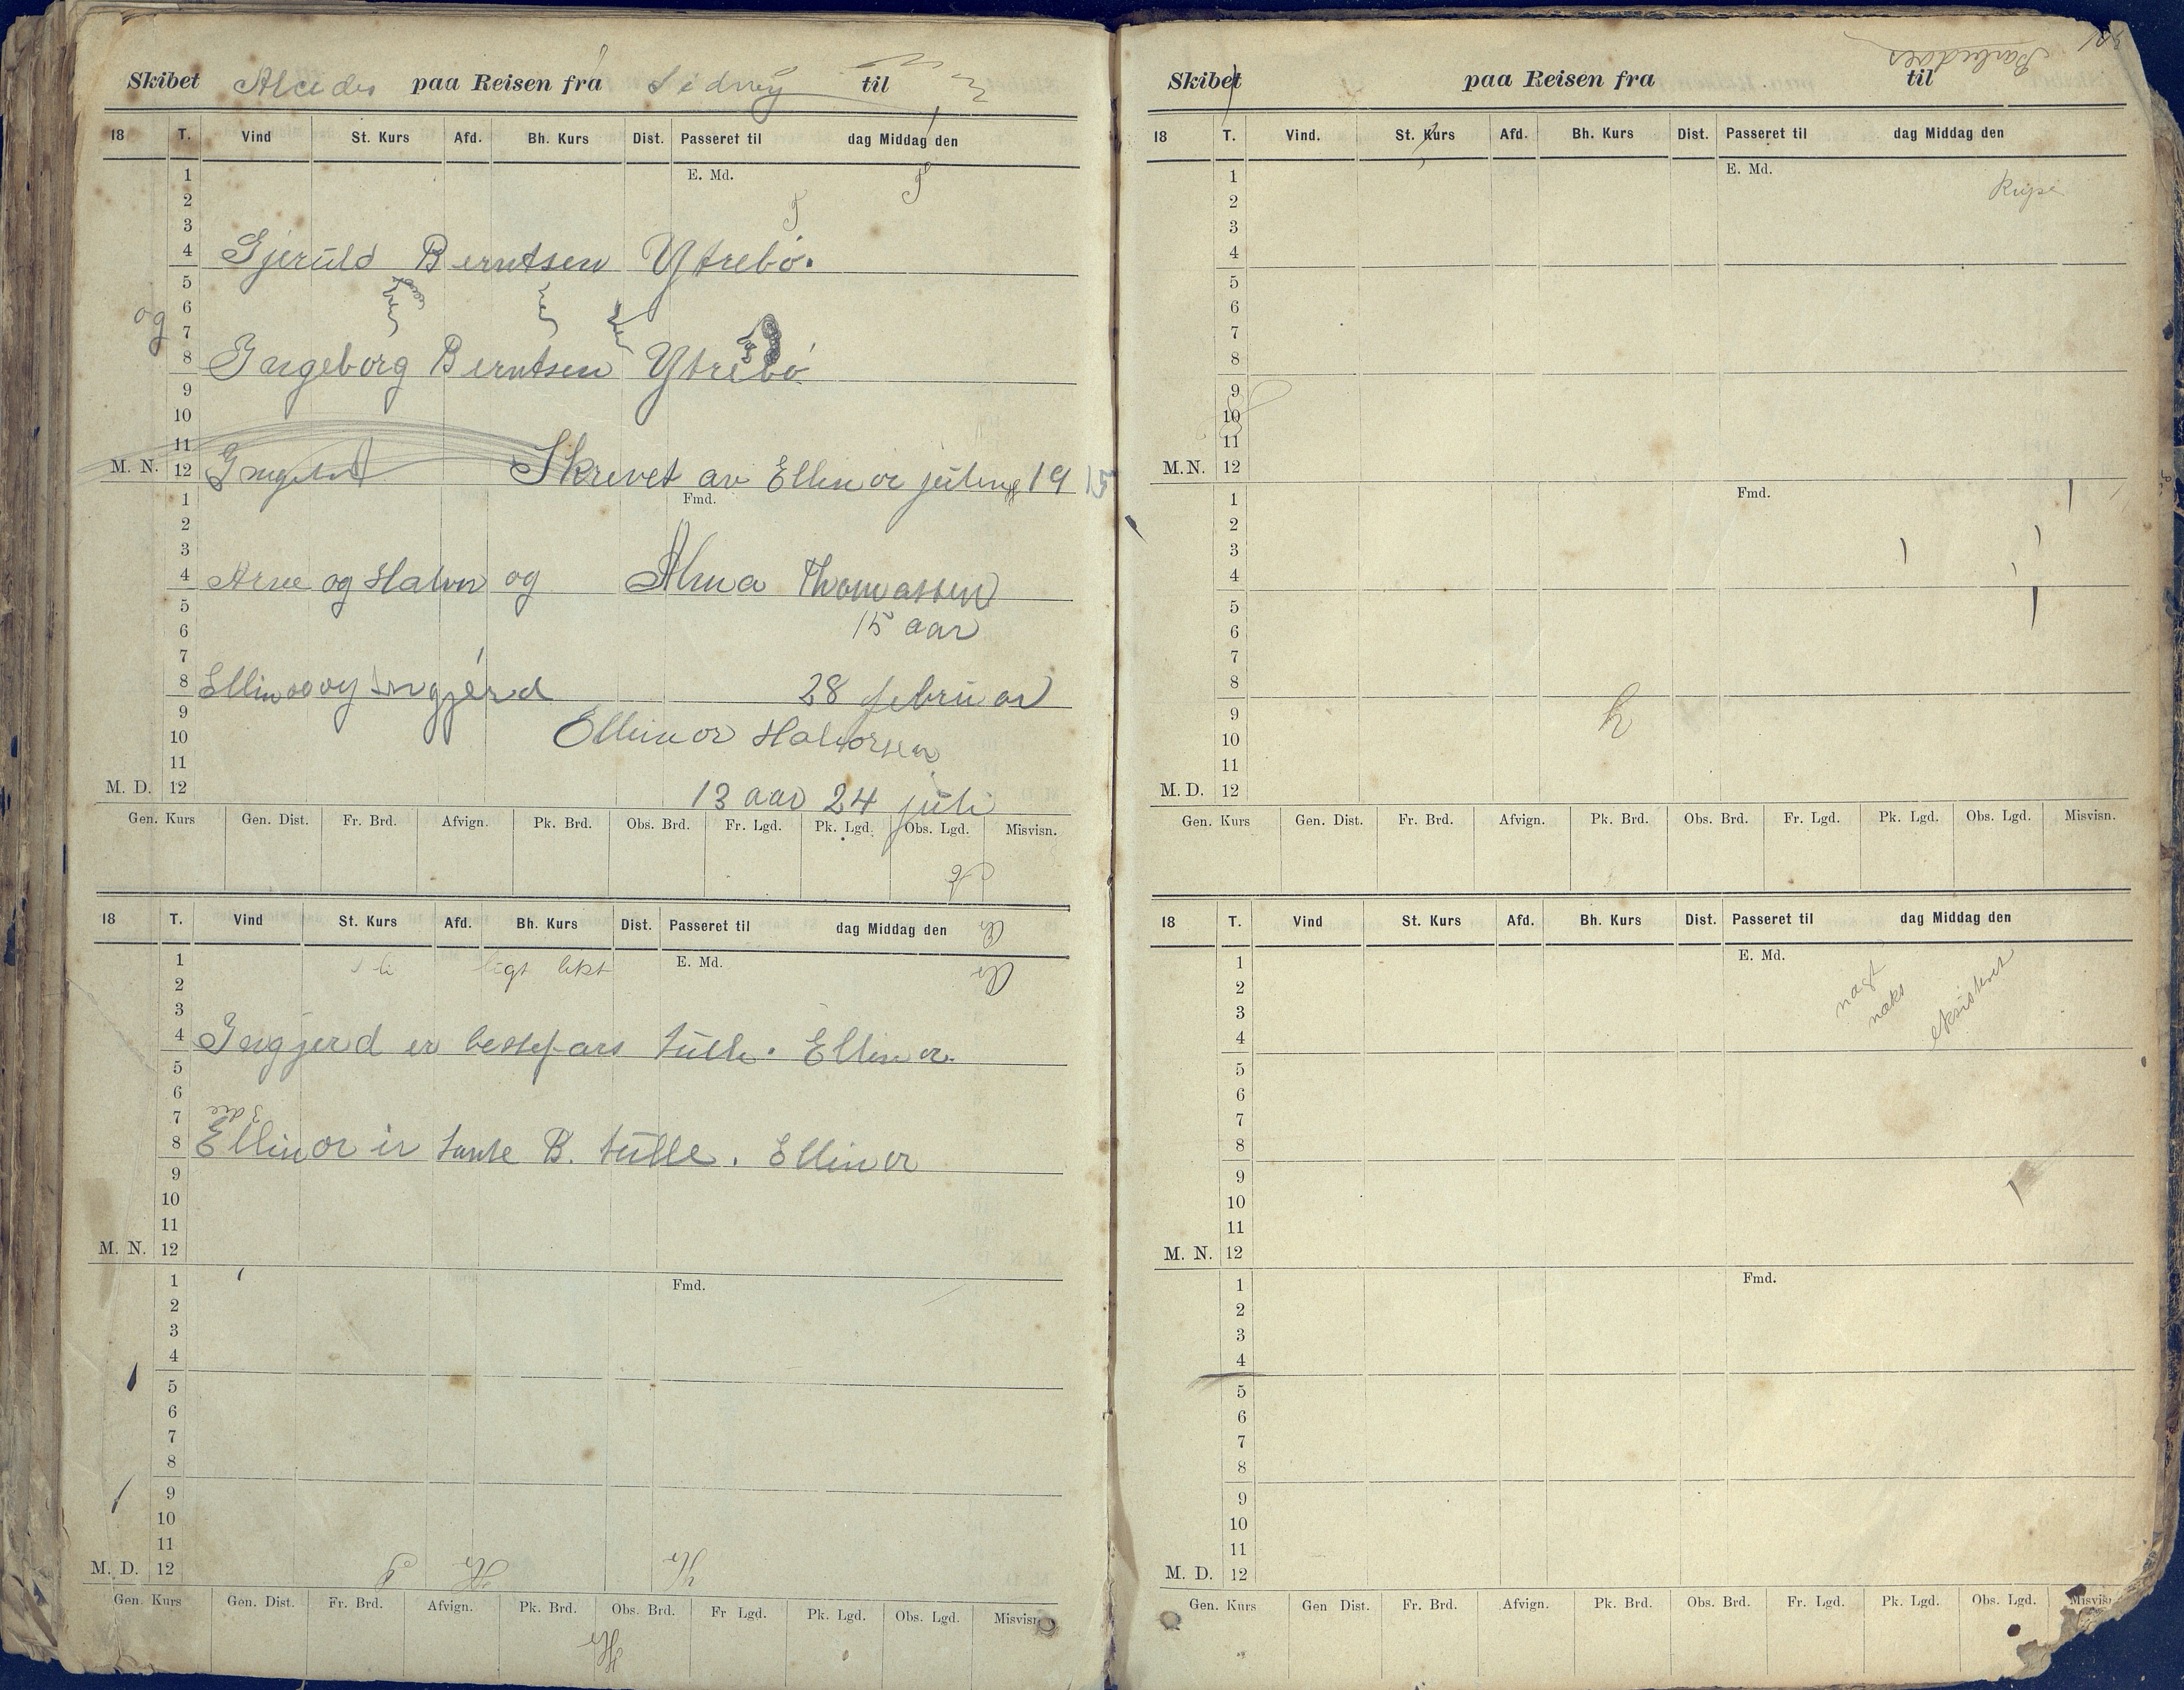 Skibet Alcides paa Reisen fra Sidney til
18 T. Vind St. Kurs Afd. Bh. Kurs Dist. Passeret til dag Middag den
E. Md.
1
2
3
4 Gjeruld Berntsen Ytrebö.
5
6
og
7
8 Ingeborg Berntsen Ytrebö
9
10
11
M. N. 12 Skrevet av Ellinor 1915
Fmd.
1
2
3
4 Arne og Halvor og Alma Thomassen
5
6 15 aar
7
8 Ellinor og Ingjerd 28 februar
9
10 Ellinor Halvorsen
11
M. D. 12 13 aar 24 juli
Gen. Kurs Gen. Dist. Fr. Brd. Afvign. Pk. Brd. Obs. Brd. Fr. Lgd. Pk. Lgd. Obs. Lgd. Misvisn.
18 T. Vind St. Kurs Afd. Bh. Kurs Dist. Passeret til dag Middag den
E. Md.
1
2
3
4 Ingjerd er bestefars tulle. Ellinor.
5
6
7
8 Ellinor er tante B. tulle. Ellinor
9
10
11
M. N. 12
Fmd.
1
2
3
4
5
6
7
8
9
10
11
M. D. 12
Gen. Kurs Gen. Dist. Fr. Brd. Afvign. Pk. Brd. Obs. Brd. Fr Lgd. Pk. Lgd. Obs. Lgd. Misvisn.
Skibet paa Reisen fra til
Barbados
18 T. Vind. St. Kurs Afd. Bh. Kurs Dist. Passeret til dag Middag den
E. Md.
1
2
3
4
5
6
7
8
9
10
11
M. N. 12
Fmd.
1
2
3
4
5
6
7
8
9
10
11
M. D. 12
Gen. Kurs Gen. Dist. Fr. Brd. Afvign. Pk. Brd. Obs. Brd. Fr. Lgd. Pk. Lgd. Obs. Lgd. Misvisn.
18 T. Vind St. Kurs Afd. Bh. Kurs Dist. Passeret til dag Middag den
E. Md.
1
2
3
4
5
6
7
8
9
10
11
M. N. 12
Fmd.
1
2
3
4
5
6
7
8
9
10
11
M. D. 12
Gen. Kurs Gen Dist. Fr. Brd. Afvign. Pk. Brd. Obs. Brd. Fr. Lgd. Pk. Lgd. Obs. Lgd.